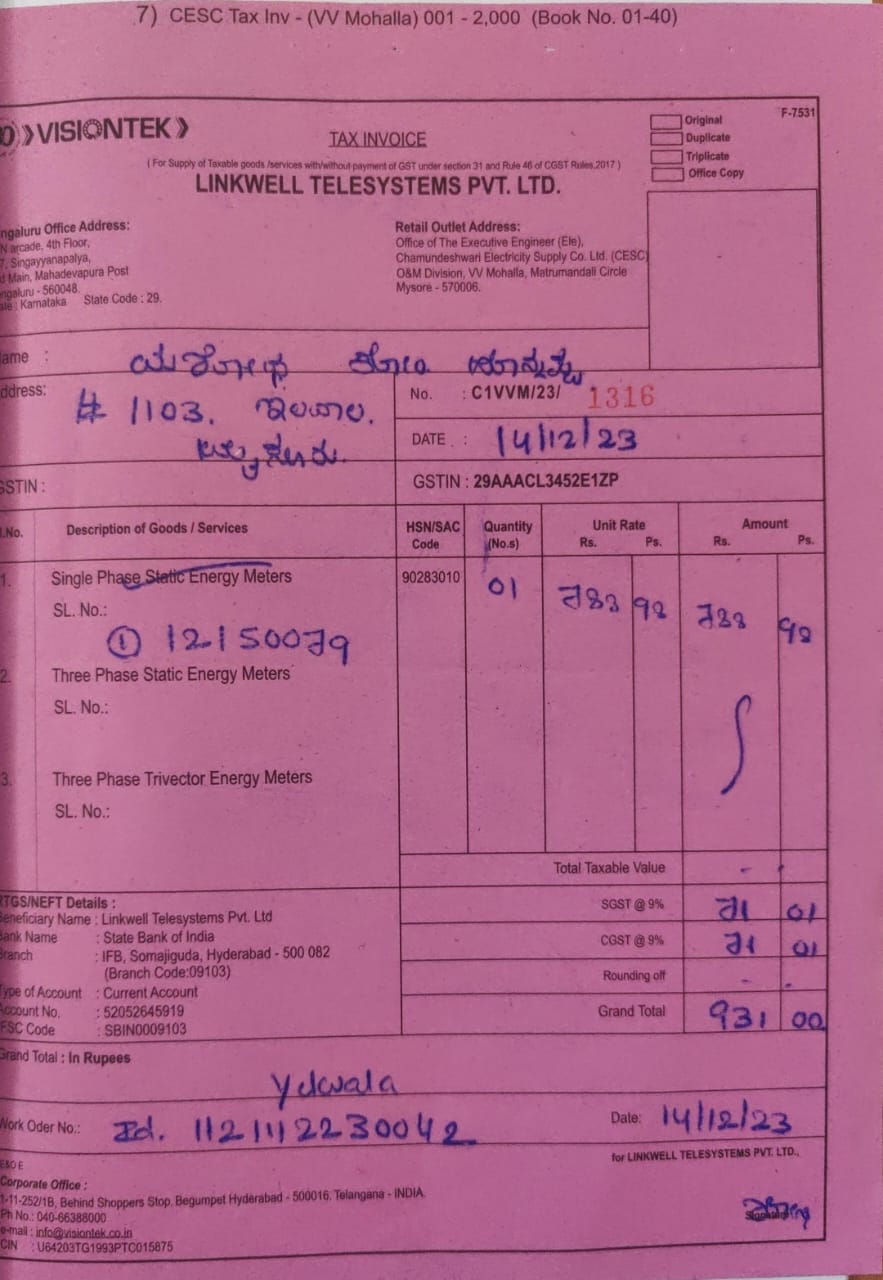 7) CESC Tax Inv - (VV Mohalla) 001 - 2,000 (Book No. 01-40)
VISIONTEK
F-7531
TAX INVOICE
Original
Duplicate
Triplicate
Office Copy
( For Supply of Taxable goods /services with/without payment of GST under section 31 and Rule 46 of CGST Rules,2017 )
LINKWELL TELESYSTEMS PVT. LTD.
ngaluru Office Address:
N arcade, 4th Floor,
7, Singayyanapalya,
d Main, Mahadevapura Post
ngaluru - 560048.
ate : Karnataka State Code : 29.
Retail Outlet Address:
Office of The Executive Engineer (Ele),
Chamundeshwari Electricity Supply Co. Ltd. (CESC)
O&M Division, VV Mohalla, Matrumandali Circle
Mysore - 570006.
ame :
ddress: # 1103.
No. : C1VVM/23/ 1316
DATE : 14/12/23
GSTIN :
GSTIN : 29AAACL3452E1ZP
.No. Description of Goods / Services HSN/SAC Code Quantity (No.s) Unit Rate Rs. Ps. Amount Rs. Ps.
1. Single Phase Static Energy Meters 90283010 01
SL. No.:
① 12150079
2. Three Phase Static Energy Meters
SL. No.:
3. Three Phase Trivector Energy Meters
SL. No.:
Total Taxable Value - -
RTGS/NEFT Details :
Beneficiary Name : Linkwell Telesystems Pvt. Ltd
Bank Name : State Bank of India
Branch : IFB, Somajiguda, Hyderabad - 500 082
(Branch Code:09103)
Type of Account : Current Account
Account No. : 52052645919
FSC Code : SBIN0009103
SGST @ 9% 71 01
CGST @ 9% 71 01
Rounding off - -
Grand Total 931 00
Grand Total : In Rupees
Yelwala
Work Oder No.: Id. 1121112230042
Date: 14/12/23
for LINKWELL TELESYSTEMS PVT. LTD.,
E&O E
Corporate Office :
1-11-252/1B, Behind Shoppers Stop, Begumpet Hyderabad - 500016, Telangana - INDIA
Ph No.: 040-66388000
e-mail : info@visiontek.co.in
CIN : U64203TG1993PTC015875